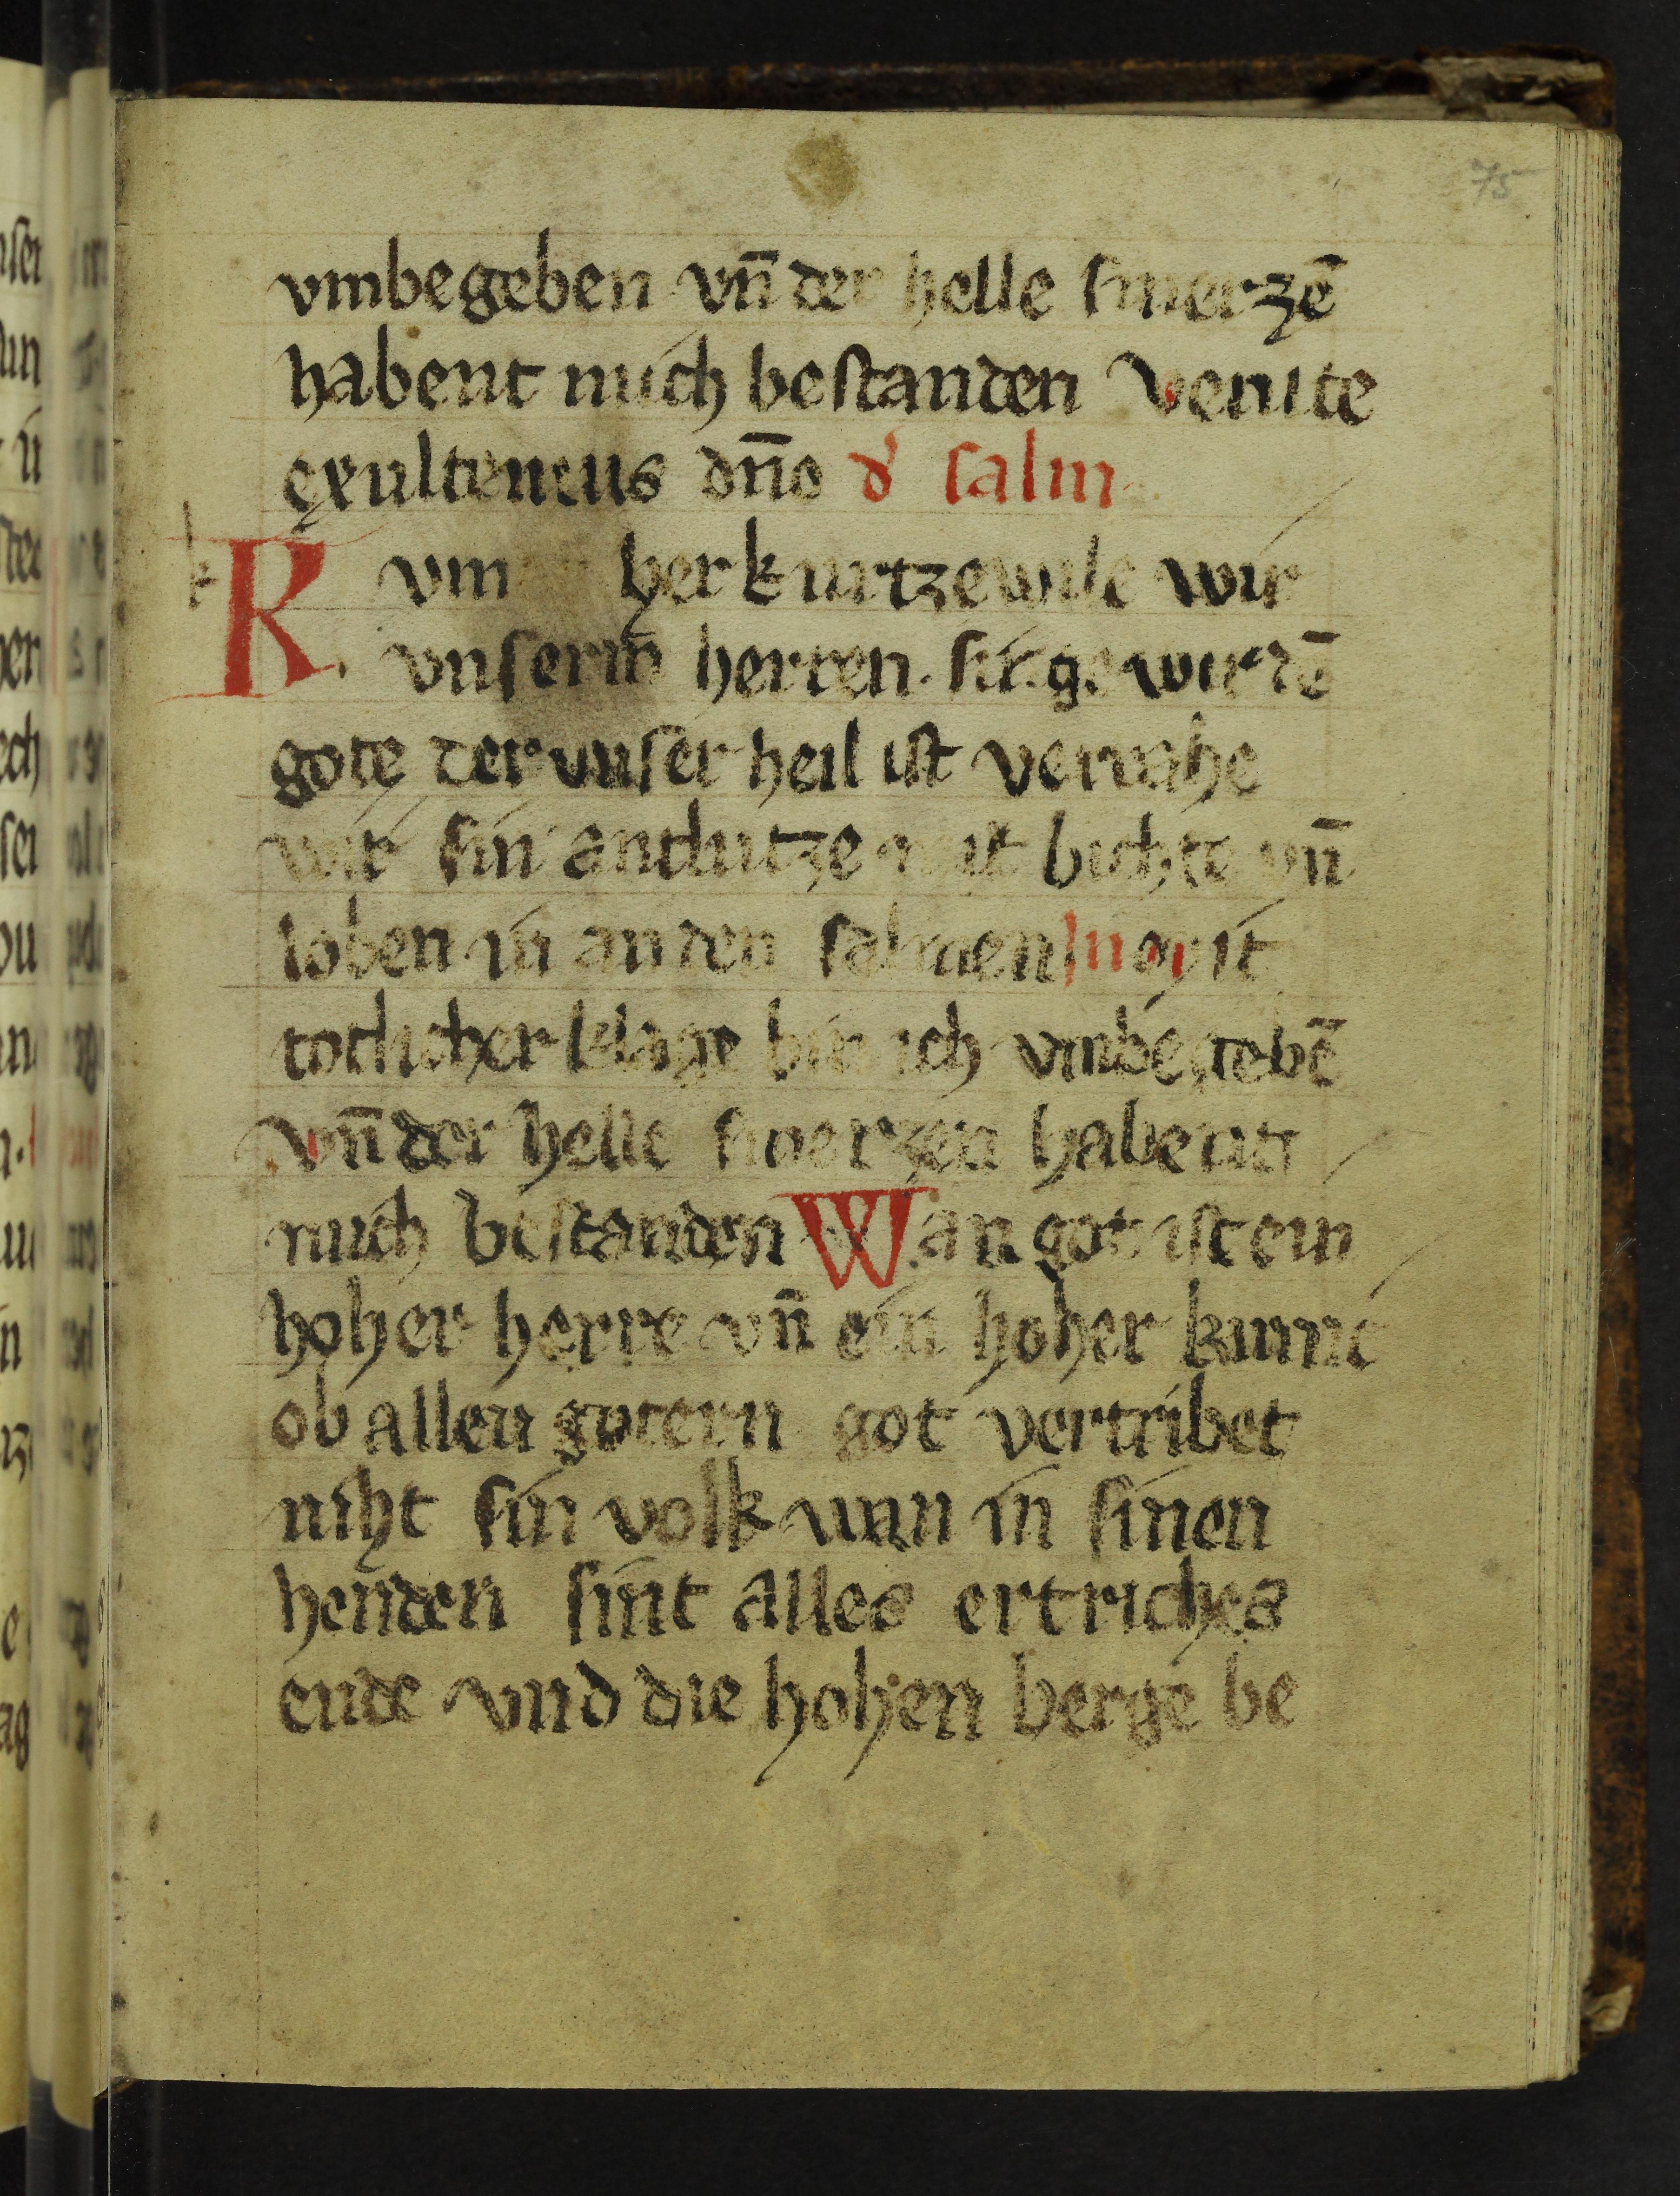 75
vmbegeben vn̄ der helle smerzē
habent mich bestanden Venite
exultemus dn̄o d' salm
k
Kvm her kurtzewile wir
vnserm herren. sin gewurdē
gote der vnser heil ist vervahe
wir sin antlutze mit bichte vn̄
loben in an den salmen Mit
totlicher klage bin ich vmbegebē
vn̄ der helle smerzen habent
mich bestanden Wan got ist ein
hoher herre vn̄ ein hoher kunic
ob allen gotern got vertribet
niht sin volk wan in sinen
henden sint alles ertriches
ende vnd die hohen berge be